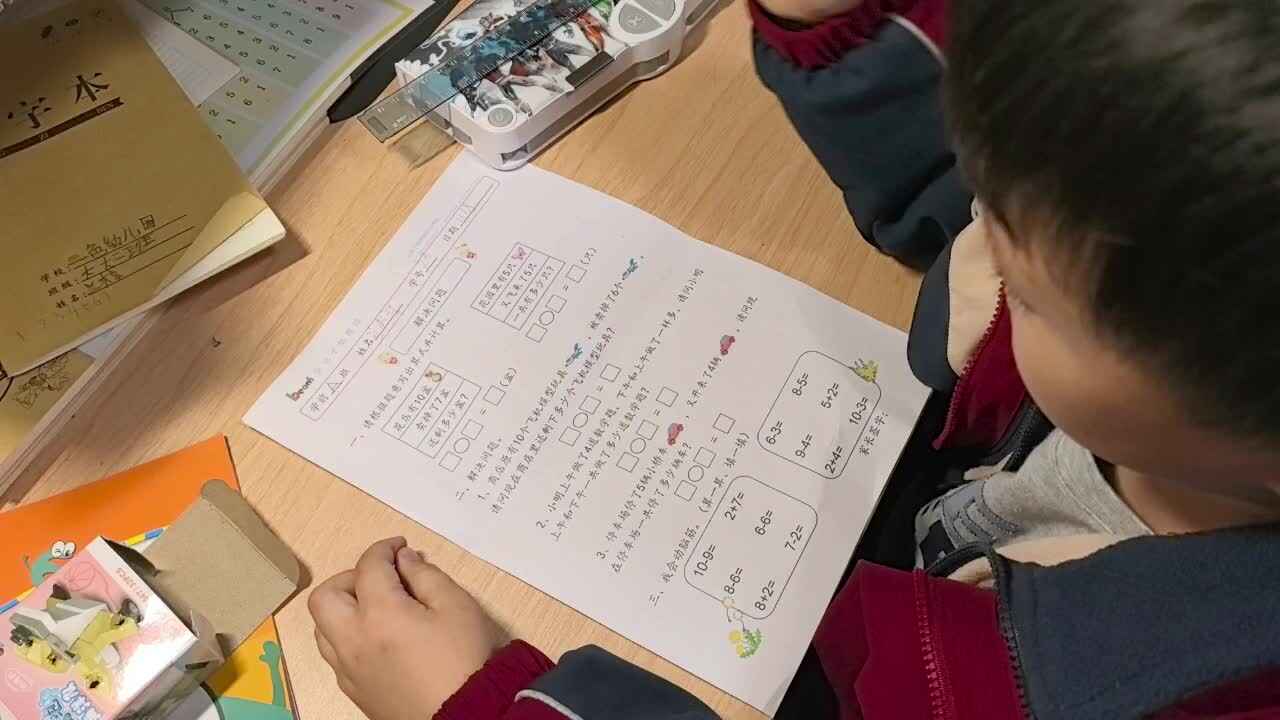 字本
学校
班级
姓名
学前 班 姓名 学号 日期
解决问题
一、请根据题意写出算式并计算。
花店有10盆
卖掉了7盆
还剩多少盆?
□○□=□(盆)
花园里有5只
又飞来了5只
一共有多少只?
□○□=□(只)
二、解决问题。
1、商店原有10个飞机模型玩具,被卖掉了6个,
请问现在商店里还剩下多少个飞机模型玩具?
□○□=□
2、小明上午做了4道数学题,下午和上午做了一样多,请问小明
上午和下午一共做了多少道数学题?
□○□=□
3、停车场停了5辆小轿车,又开来了4辆,请问现
在停车场一共停了多少辆车?
□○□=□
三、我会动脑筋。(算一算,填一填)
10-9= 2+7=
8-6= 6-6=
8+2= 7-2=
6-3= 8-5=
9-4= 5+2=
2+4= 10-3=
家长签字: